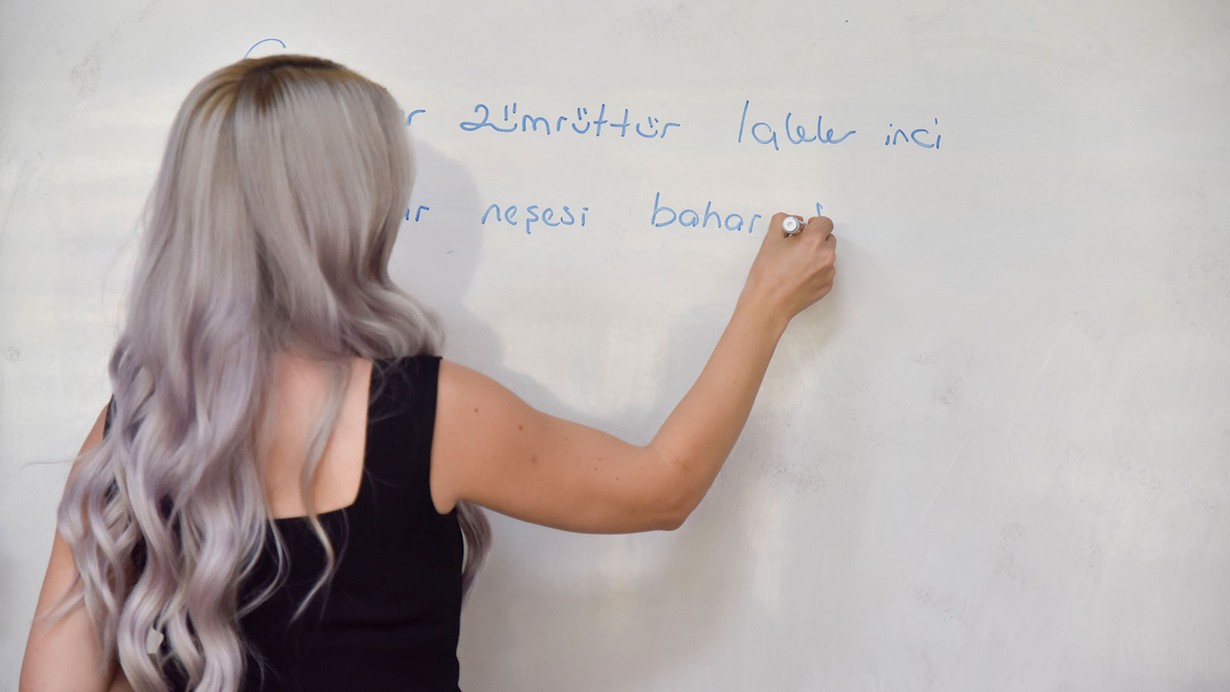 zümrüttür laleler inci
neşesi bahar